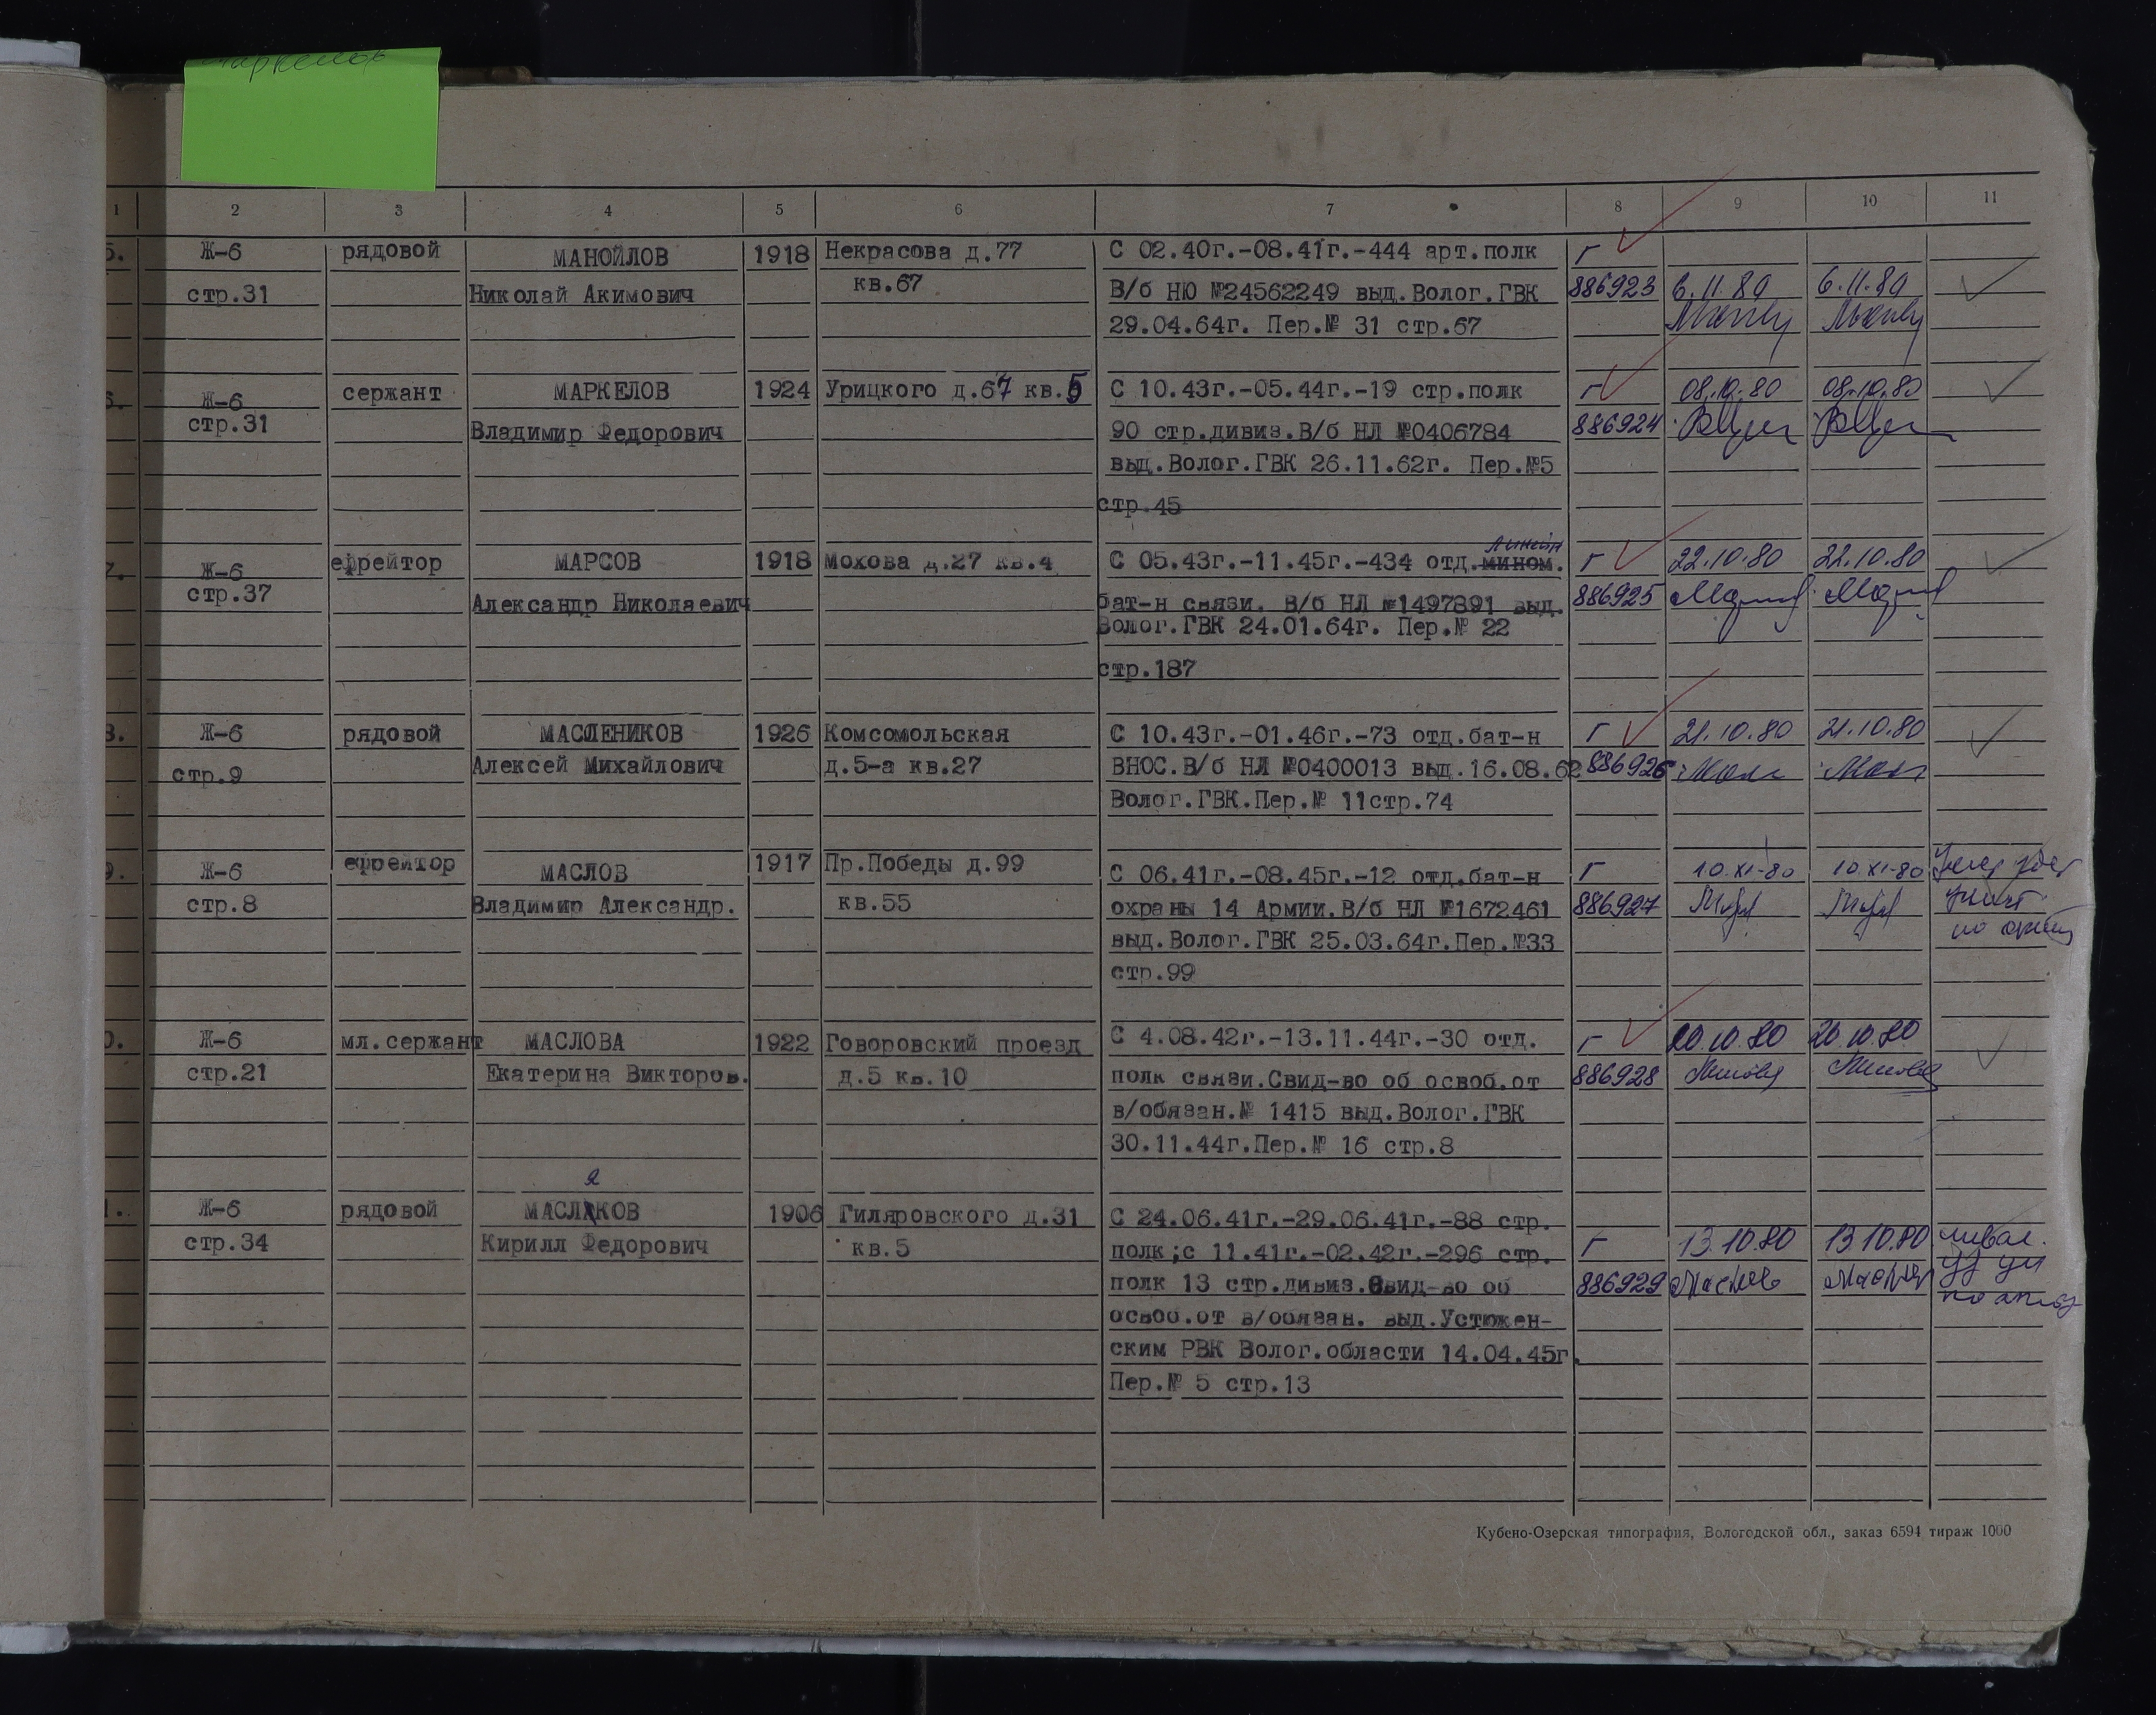 Маркелов
1 2 3 4 5 6 7 8 9 10 11
5. Ж-6 рядовой МАНОЙЛОВ 1918 Некрасова д.77 С 02.40г.-08.41г.-444 арт.полк Г
стр.31 Николай Акимович кв.67 В/б НЮ №24562249 выд.Волог.ГВК 886923 6.11.80 6.11.80
29.04.64г. Пер.№ 31 стр.67
6. Ж-6 сержант МАРКЕЛОВ 1924 Урицкого д.67 кв.5 С 10.43г.-05.44г.-19 стр.полк Г 08.10.80 08.10.80
стр.31 Владимир Федорович 90 стр.дивиз.В/б НЛ №0406784 886924
выд.Волог.ГВК 26.11.62г. Пер.№5
стр.45
линейн
7. Ж-6 ефрейтор МАРСОВ 1918 Мохова д.27 кв.4 С 05.43г.-11.45г.-434 отд.мином. Г 22.10.80 22.10.80
стр.37 Александр Николаевич бат-н связи. В/б НЛ №1497891 выд. 886925
Волог.ГВК 24.01.64г. Пер.№ 22
стр.187
8. Ж-6 рядовой МАСЛЕНИКОВ 1926 Комсомольская С 10.43г.-01.46г.-73 отд.бат-н Г 21.10.80 21.10.80
стр.9 Алексей Михайлович д.5-а кв.27 ВНОС.В/б НЛ №0400013 выд.16.08.62 886926
Волог.ГВК.Пер.№ 11стр.74
9. Ж-6 ефрейтор МАСЛОВ 1917 Пр.Победы д.99 С 06.41г.-08.45г.-12 отд.бат-н Г 10.XI-80 10.XI-80
стр.8 Владимир Александр. кв.55 охраны 14 Армии.В/б НЛ №1672461 886927
выд.Волог.ГВК 25.03.64г.Пер.№33
стр.99
0. Ж-6 мл.сержант МАСЛОВА 1922 Говоровский проезд С 4.08.42г.-13.11.44г.-30 отд. Г 20.10.80 20.10.80
стр.21 Екатерина Викторов. д.5 кв.10 полк связи.Свид-во об освоб.от 886928
в/обязан.№ 1415 выд.Волог.ГВК
30.11.44г.Пер.№ 16 стр.8
я
1. Ж-6 рядовой МАСЛАКОВ 1906 Гиляровского д.31 С 24.06.41г.-29.06.41г.-88 стр.
стр.34 Кирилл Федорович кв.5 полк;с 11.41г.-02.42г.-296 стр. Г 13.10.80 13.10.80
полк 13 стр.дивиз.Свид-во об 886929
освоб.от в/обязан. выд.Устюжен-
ским РВК Волог.области 14.04.45г.
Пер.№ 5 стр.13
Кубено-Озерская типография, Вологодской обл., заказ 6594 тираж 1000